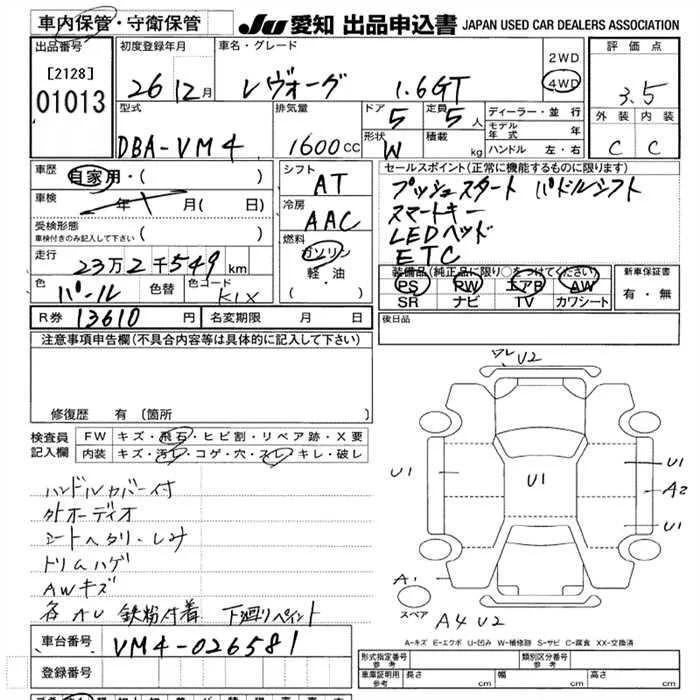 車内保管・守衛保管
JU 愛知 出品申込書 JAPAN USED CAR DEALERS ASSOCIATION
出品番号
[2128]
01013
初度登録年月
26 12月
車名・グレード
レヴォーグ 1.6GT
2WD
4WD
評価点
3.5
外装 内装
C C
型式
DBA-VM4
排気量
1600cc
ドア 5
定員 5人
形状 W
積載 kg
ディーラー・並行
モデル年式 年
ハンドル 左・右
車歴 自家用・( )
車検 年 月(日)
受検形態
車検付きのみ記入して下さい ( )
走行
23万2千549km
色 パール 色替 色コード K1X
シフト
AT
冷房
AAC
燃料
ガソリン
軽・油
( )
セールスポイント(正常に機能するものに限ります)
プッシュスタート パドルシフト
スマートキー
LEDヘッド
ETC
装備品(純正品に限り○をつけてください)
PS PW エアB AW
SR ナビ TV カワシート
新車保証書
有・無
R券 13610円 名変期限 月 日
後日品
注意事項申告欄(不具合内容等は具体的に記入して下さい)
修復歴 有 [箇所 ]
検査員記入欄
FW キズ・飛石・ヒビ割・リペア跡・X要
内装 キズ・汚レ・コゲ・穴・スレ・キレ・破レ
ハンドルカバー付
外オーディオ
シートヘタリ・しみ
トリムハゲ
AWキズ
各AU 鉄粉付着 下廻りペイント
ワレ U2
U1
U1
U1
A2
U1
A1
スペア
A4 U2
A-キズ E-エクボ U-凹み W-補修跡 S-サビ C-腐食 XX-交換済
車台番号 VM4-026581
登録番号
形式指定番号 参考
類別区分番号 参考
車庫証明用 参考 長さ cm 幅 cm 高さ cm